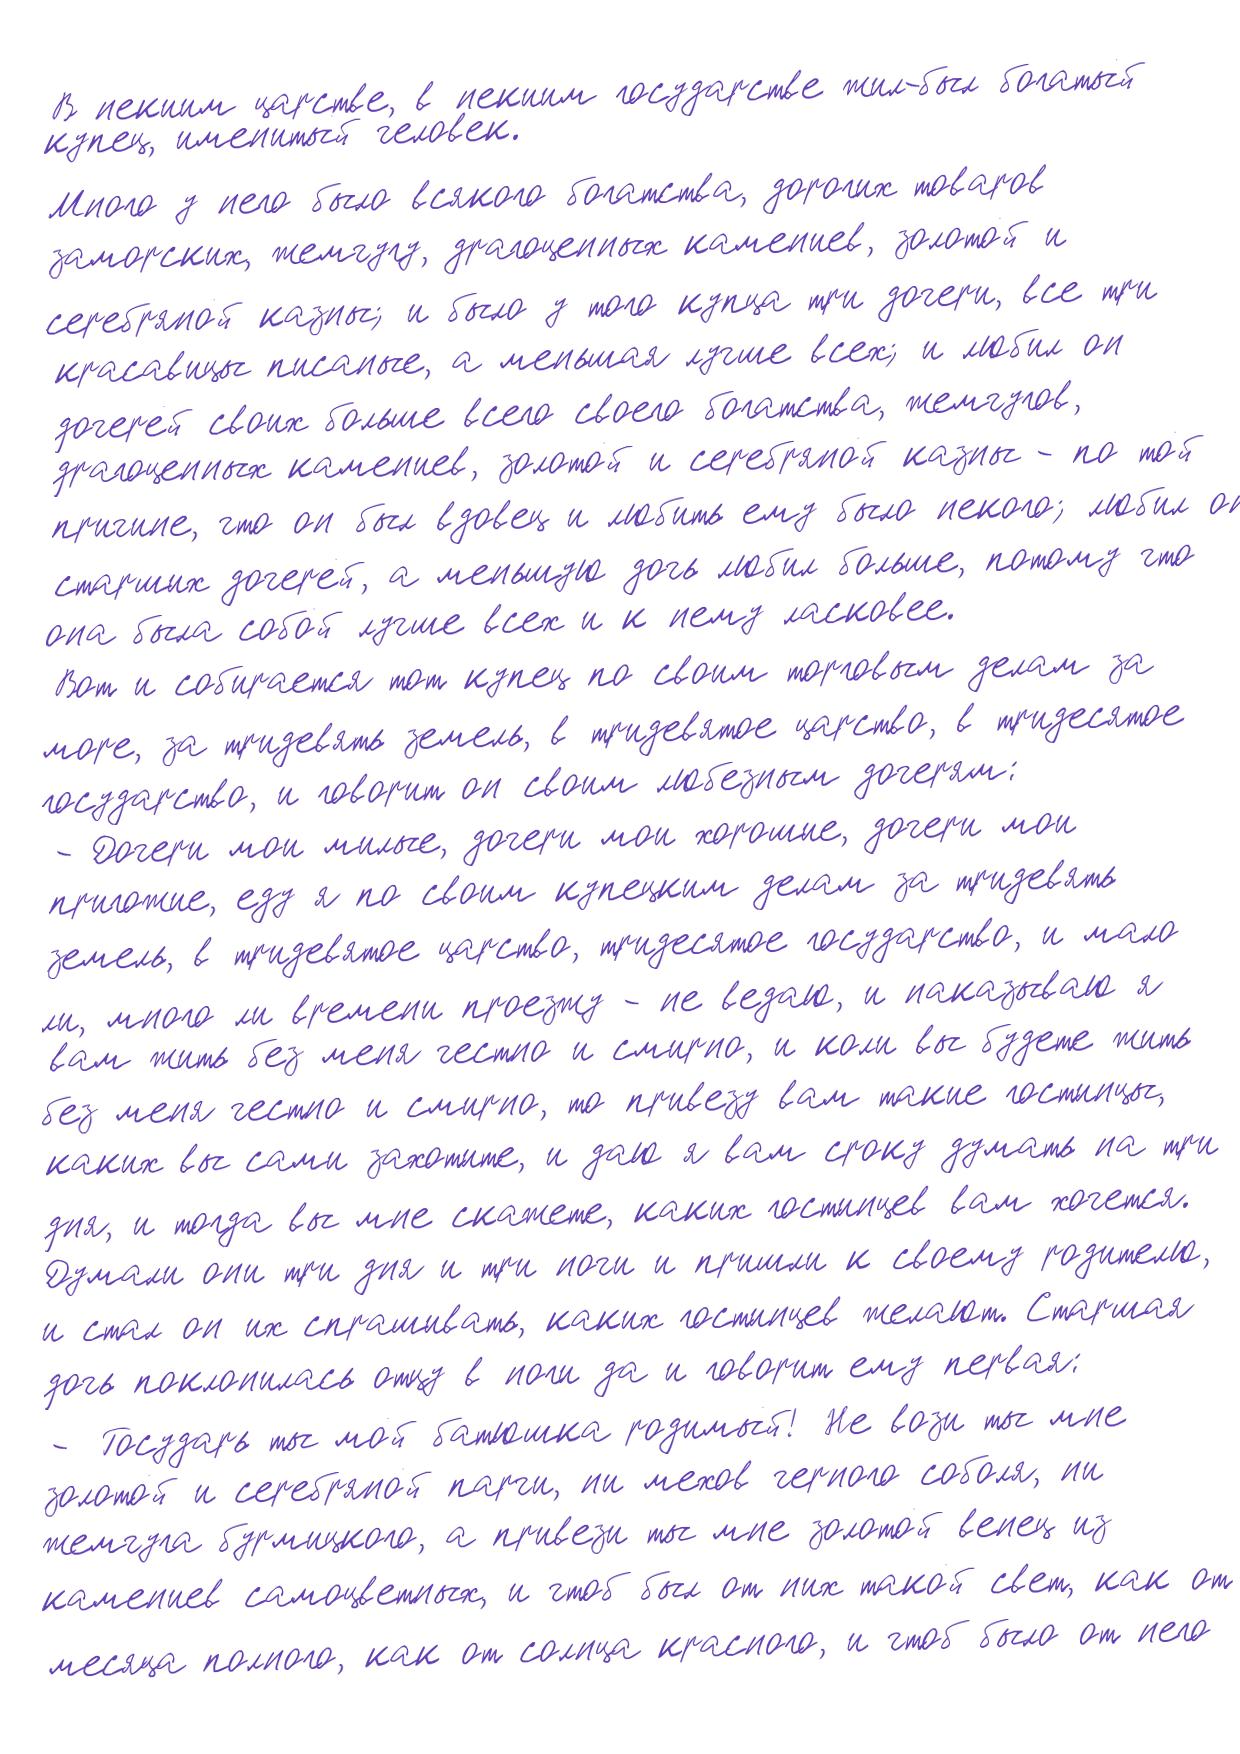 В некиим царстве, в некиим государстве жил-был богатый
купец, именитый человек.
Много у него было всякого богатства, дорогих товаров
заморских, жемчугу, драгоценных камениев, золотой и
серебряной казны; и было у того купца три дочери, все три
красавицы писаные, а меньшая лучше всех; и любил он
дочерей своих больше всего своего богатства, жемчугов,
драгоценных камениев, золотой и серебряной казны - по той
причине, что он был вдовец и любить ему было некого; любил он
старших дочерей, а меньшую дочь любил больше, потому что
она была собой лучше всех и к нему ласковее.
Вот и собирается тот купец по своим торговым делам за
море, за тридевять земель, в тридевятое царство, в тридесятое
государство, и говорит он своим любезным дочерям:
- Дочери мои милые, дочери мои хорошие, дочери мои
пригожие, еду я по своим купецким делам за тридевять
земель, в тридевятое царство, тридесятое государство, и мало
ли, много ли времени проезжу - не ведаю, и наказываю я
вам жить без меня честно и смирно, и коли вы будете жить
без меня честно и смирно, то привезу вам такие гостинцы,
каких вы сами захотите, и даю я вам сроку думать на три
дня, и тогда вы мне скажете, каких гостинцев вам хочется.
Думали они три дня и три ночи и пришли к своему родителю,
и стал он их спрашивать, каких гостинцев желают. Старшая
дочь поклонилась отцу в ноги да и говорит ему первая:
- Государь ты мой батюшка родимый! Не вози ты мне
золотой и серебряной парчи, ни мехов черного соболя, ни
жемчуга бурмицкого, а привези ты мне золотой венец из
камениев самоцветных, и чтоб был от них такой свет, как от
месяца полного, как от солнца красного, и чтоб было от него